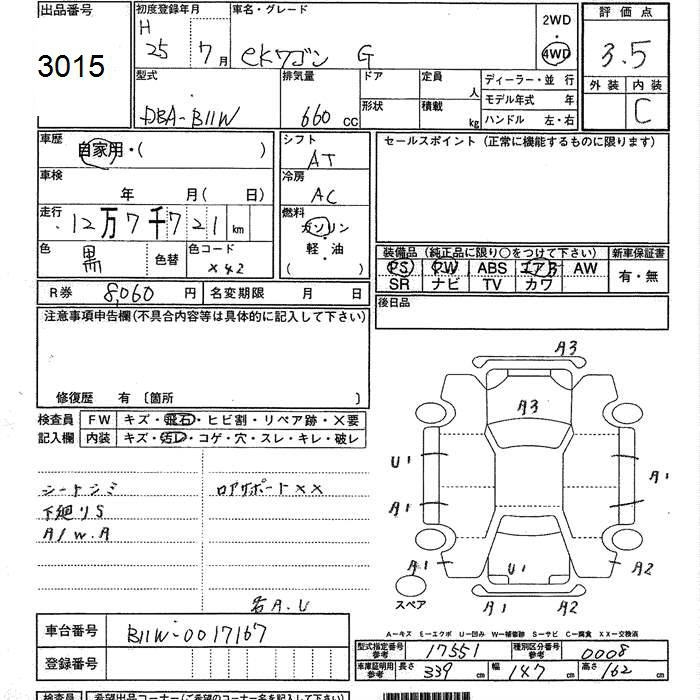 出品番号
3015
初度登録年月
H
25 7月
車名・グレード
eKワゴン G
2WD
・
4WD
評価点
3.5
外装 内装
C
型式
DBA-B11W
排気量
660 cc
ドア
形状
定員 人
積載 kg
ディーラー・並 行
モデル年式 年
ハンドル 左・右
車歴
自家用・( )
シフト
AT
セールスポイント (正常に機能するものに限ります)
車検
年 月( 日)
冷房
AC
走行
12万7千721 km
燃料
ガソリン
・
軽・油
( )
色
黒
色替
色コード
X42
装備品 (純正品に限り○をつけて下さい)
新車保証書
PS PW ABS エアB AW
SR ナビ TV カワ
有・無
R券 8,060 円
名変期限 月 日
後日品
注意事項申告欄(不具合内容等は具体的に記入して下さい)
修復歴 有 〔箇所 〕
検査員
記入欄
FW キズ・飛石・ヒビ割・リペア跡・X要
内装 キズ・汚レ・コゲ・穴・スレ・キレ・破レ
シートシミ
下廻りS
A/W.A
ロアサポートXX
各A.U
A3
A3
U1
A1
A1
A1
A1
U1
A2
A1
A2
スペア
A-キズ E-エクボ U-凹み W-補修跡 S-サビ C-腐食 XX-交換済
車台番号
B11W-0017167
型式指定番号
参考
17551
種別区分番号
参考
0008
登録番号
車庫証明用
参考
長さ 339 cm
幅 147 cm
高さ 162 cm
検査員
希望出品コーナー(ご希望のコーナー名を記入して下さい)